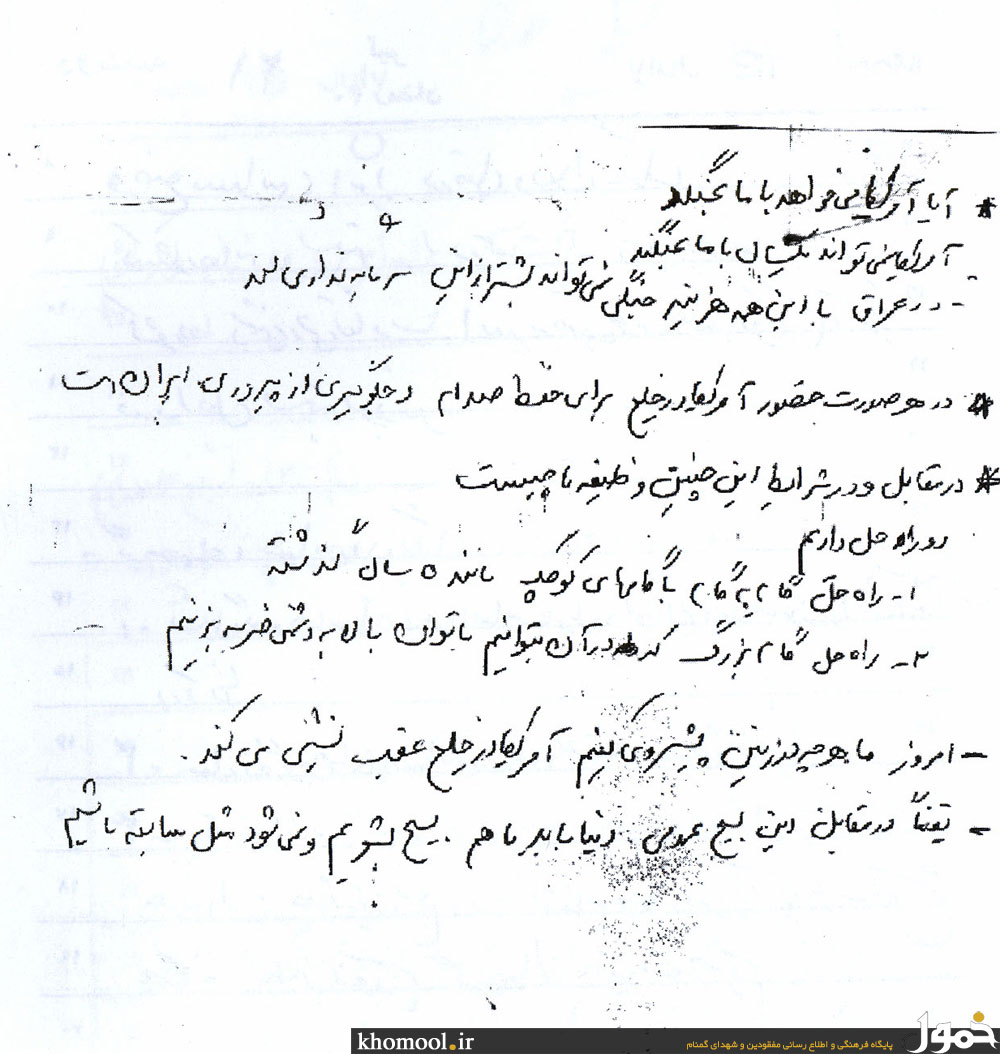 * آیا آمریکا می‌خواهد با ما بجنگد
- آمریکا نمی‌تواند یکسال با ما بجنگد
- در عراق با این همه هزینه جنگی نمی‌تواند بیشتر از این سرمایه‌گذاری کند
* در هر صورت حضور آمریکا در خلیج برای حفظ صدام و جلوگیری از پیروزی ایران است
* در مقابل و در شرایط این چنین وظیفه ما چیست
دو راه حل داریم
۱- راه حل گام به گام با گامهای کوچک مانند ۵ سال گذشته
۲- راه حل گام بزرگ که در آن بتوانیم با توان بالا به دشمن ضربه بزنیم
- امروز ما هر چه در زمین پیشروی کنیم آمریکا در خلیج عقب نشینی می کند.
- یقیناً در مقابل این بسیج عمومی دنیا باید ما هم بسیج بشویم و نمی شود مثل سابق باشیم
khomool.ir
پایگاه فرهنگی و اطلاع رسانی مفقودین و شهدای گمنام
خمول